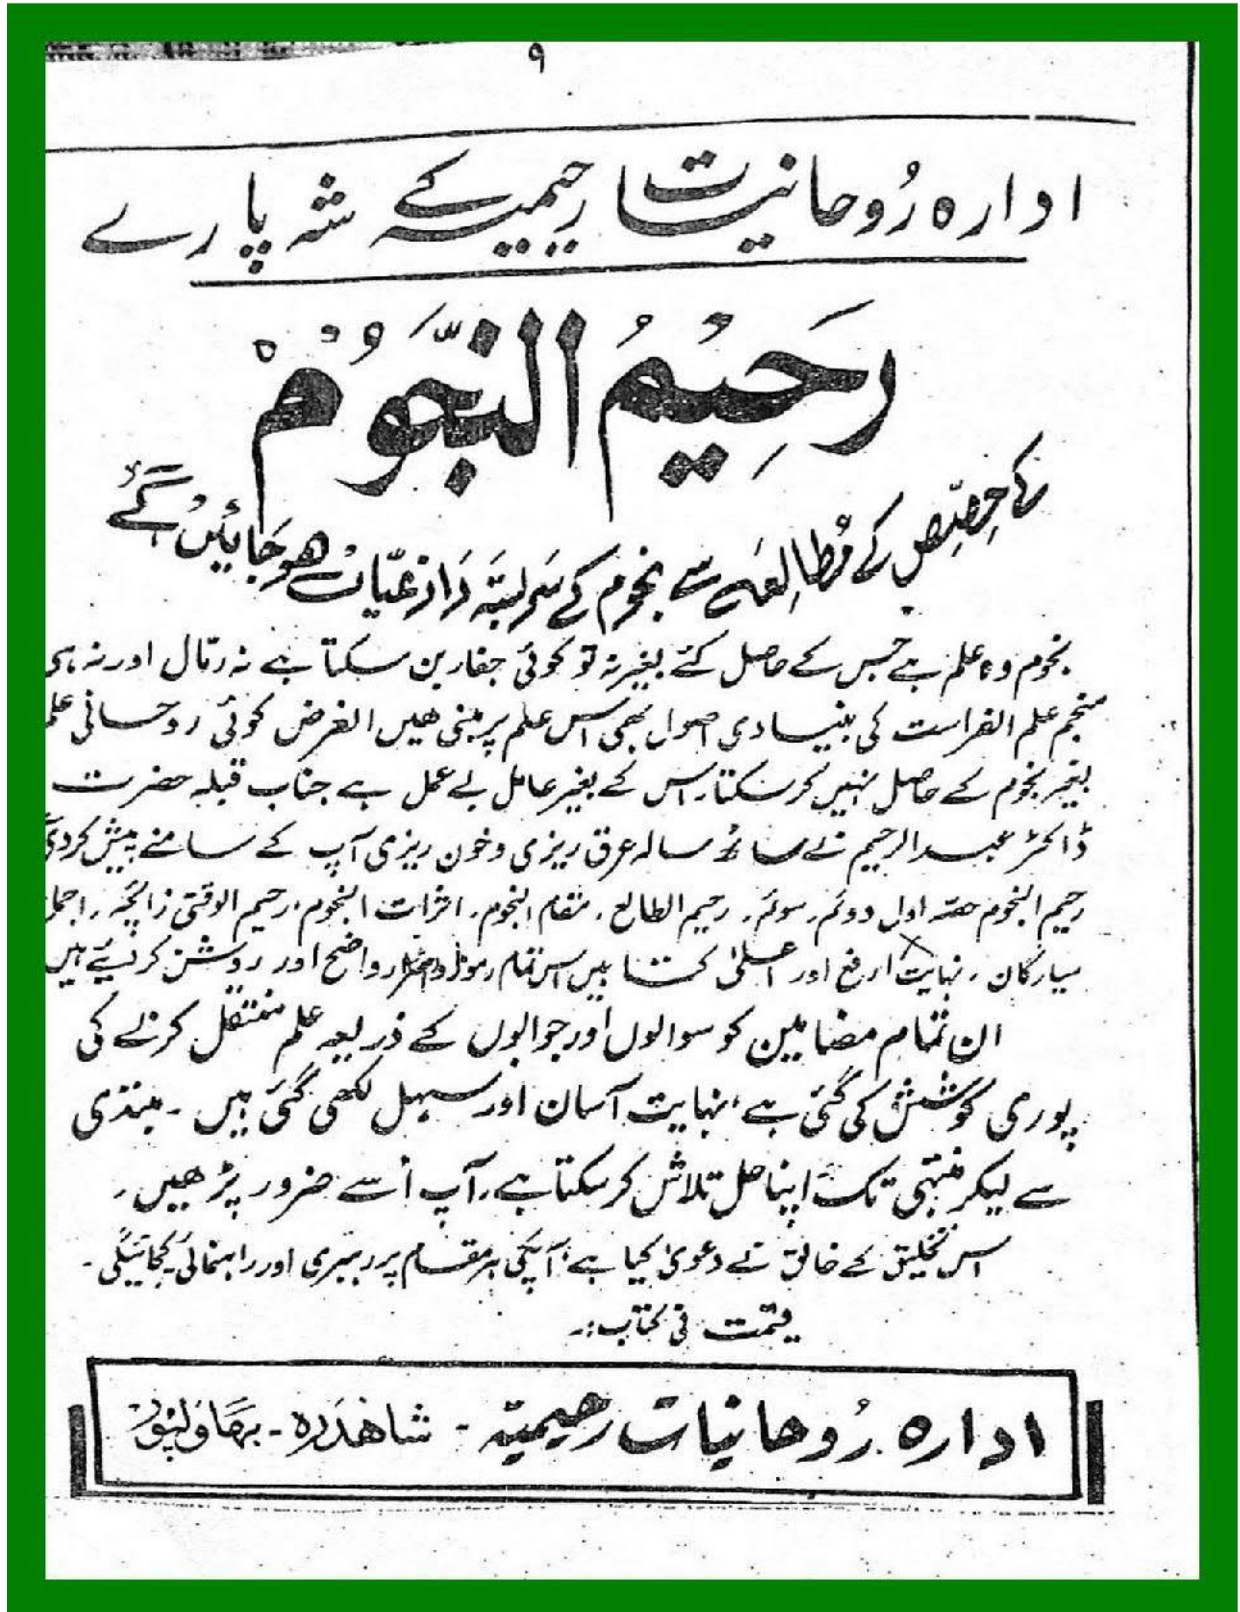 ۹
ادارہ رُوحانیات رحیمیہ کے شہ پارے
رَحِیْمُ النُّجُوْمْ
کے حِصّص کے مُطالِعہ سے نجوم کے سَربستہ رَاز عَیّاں ھوجَائیں گے
نجوم وہ علم ہے جس کے حاصل کئے بغیر نہ تو کوئی جفار بن سکتا ہے نہ رمال اور نہ ہی
منجم علم الفراست کی بنیادی اصول بھی اس علم پر مبنی ھیں الغرض کوئی روحانی علم
بغیر نجوم کے حاصل نہیں کرسکتا۔ اس کے بغیر عامل بے عمل ہے جناب قبلہ حضرت
ڈاکٹر عبدالرحیم نے ساٹھ سالہ عرق ریزی و خون ریزی آپ کے سامنے پیش کردی
رحیم النجوم حصہ اول دوئم، سوئم، رحیم الطالع، مقام النجوم، اثرات النجوم، رحیم الوقتی زائچہ،
سیارگان، نہایت ارفع اور اعلیٰ کتابیں اس تمام رموز واضح اور روشن کردئیے ہیں
ان تمام مضامین کو سوالوں اور جوابوں کے ذریعہ علم منتقل کرنے کی
پوری کوشش کی گئی ہے، نہایت آسان اور سہل لکھی گئی ہیں ۔ مبتدی
سے لیکر منتہی تک اپنا حل تلاش کرسکتا ہے۔ آپ اُسے ضرور پڑھیں۔
اس تخلیق کے خالق نے دعویٰ کیا ہے، آپکی ہر مقام پر رہبری اور راہنمائی کیجائیگی۔
قیمت فی کتاب :۔
ادارہ رُوحانیات رحیمیہ ۔ شاھدرہ ۔ بھاولپور